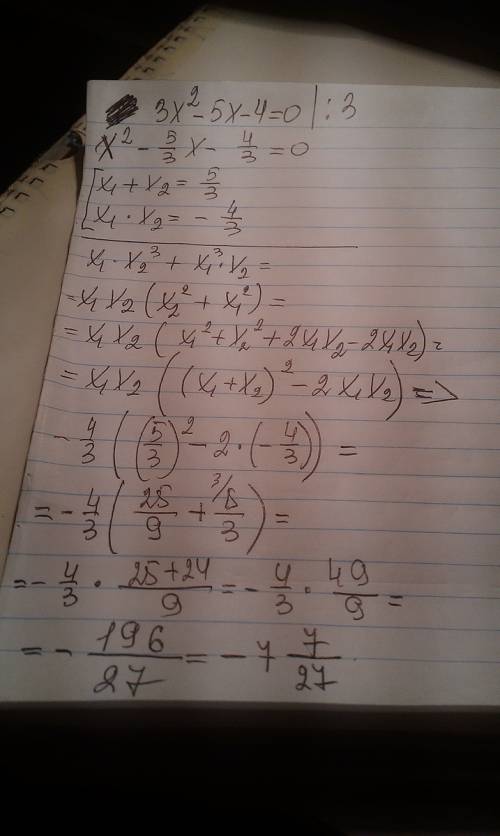 3x² - 5x - 4 = 0 | : 3
x² - 5/3 x - 4/3 = 0
[ x₁ + x₂ = 5/3
x₁ · x₂ = - 4/3
x₁ · x₂³ + x₁³ · x₂ =
= x₁ x₂ ( x₂² + x₁² ) =
= x₁ x₂ ( x₁² + x₂² + 2x₁x₂ - 2x₁x₂ ) =
= x₁ x₂ ( (x₁ + x₂)² - 2 x₁ x₂ ) =>
- 4/3 ( (5/3)² - 2 · (- 4/3) ) =
= - 4/3 ( 25/9 + ³⁄ 8/3 ) =
= - 4/3 · (25 + 24)/9 = - 4/3 · 49/9 =
= - 196/27 = - 7 7/27